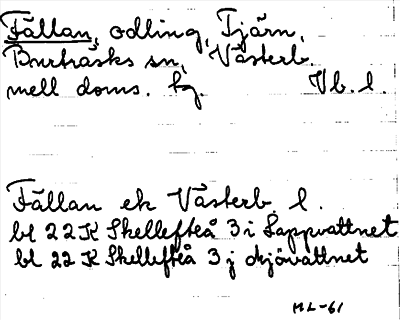 Fällan, odling, Tjärn,
Burträsks sn, Västerb.
mell doms. bg. Vb. l.
Fällan ek Västerb l.
bl 22 K Skellefteå 3 i Lappvattnet
bl 22 K Skellefteå 3 j Sjövattnet
ML-61